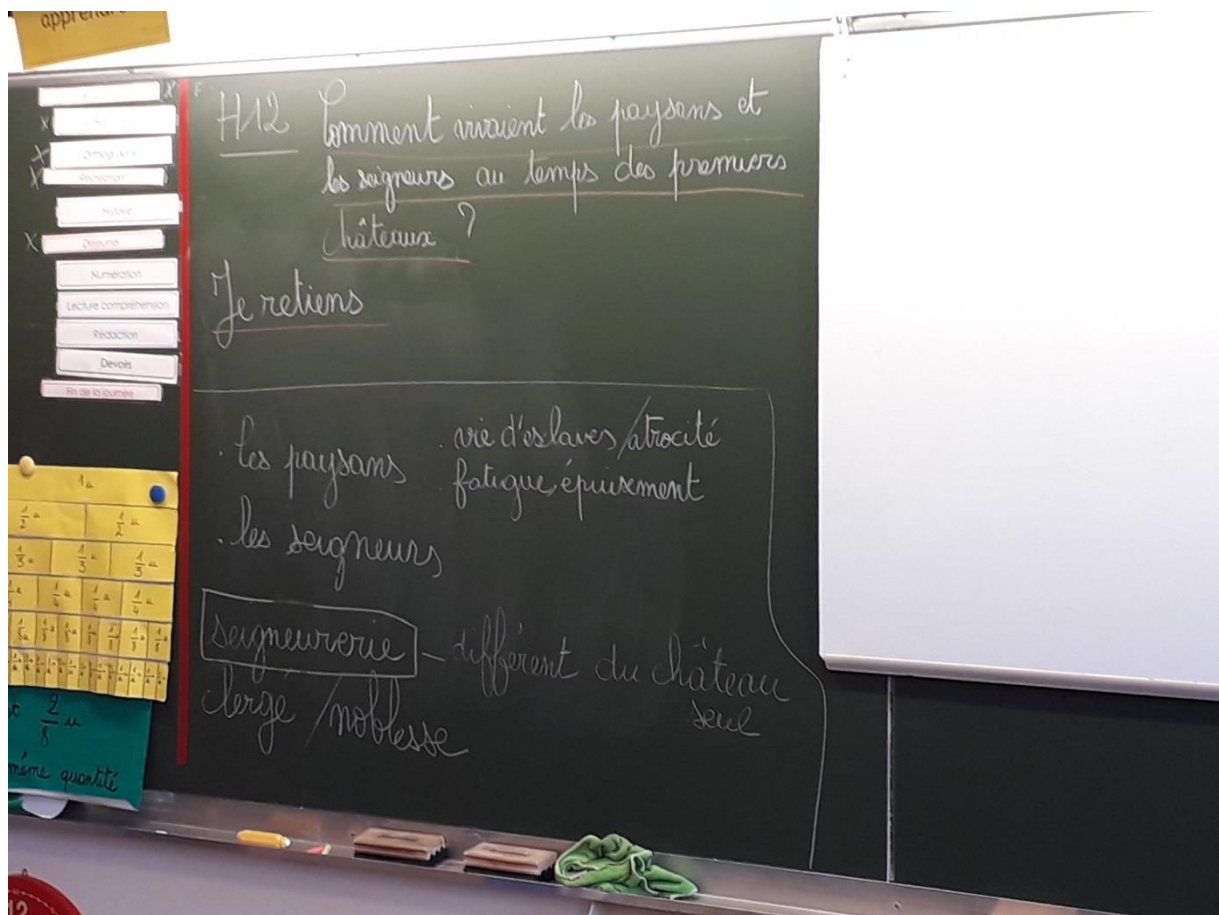 apprendre
Orthographe
Récréation
Histoire
Numération
Lecture compréhension
Rédaction
Devoirs
Fin de la journée
H12 Comment vivaient les paysans et
les seigneurs au temps des premiers
châteaux ?
Je retiens
. les paysans . vie d'eslaves / atrocité
fatigue, épuisement
. les seigneurs
seigneurerie - différent du château
seul
clergé / noblesse
1u
1/2 u 1/2 u
1/3 u 1/3 u 1/3 u
1/4 u 1/4 u 1/4 u
2/8 u
même quantité
12